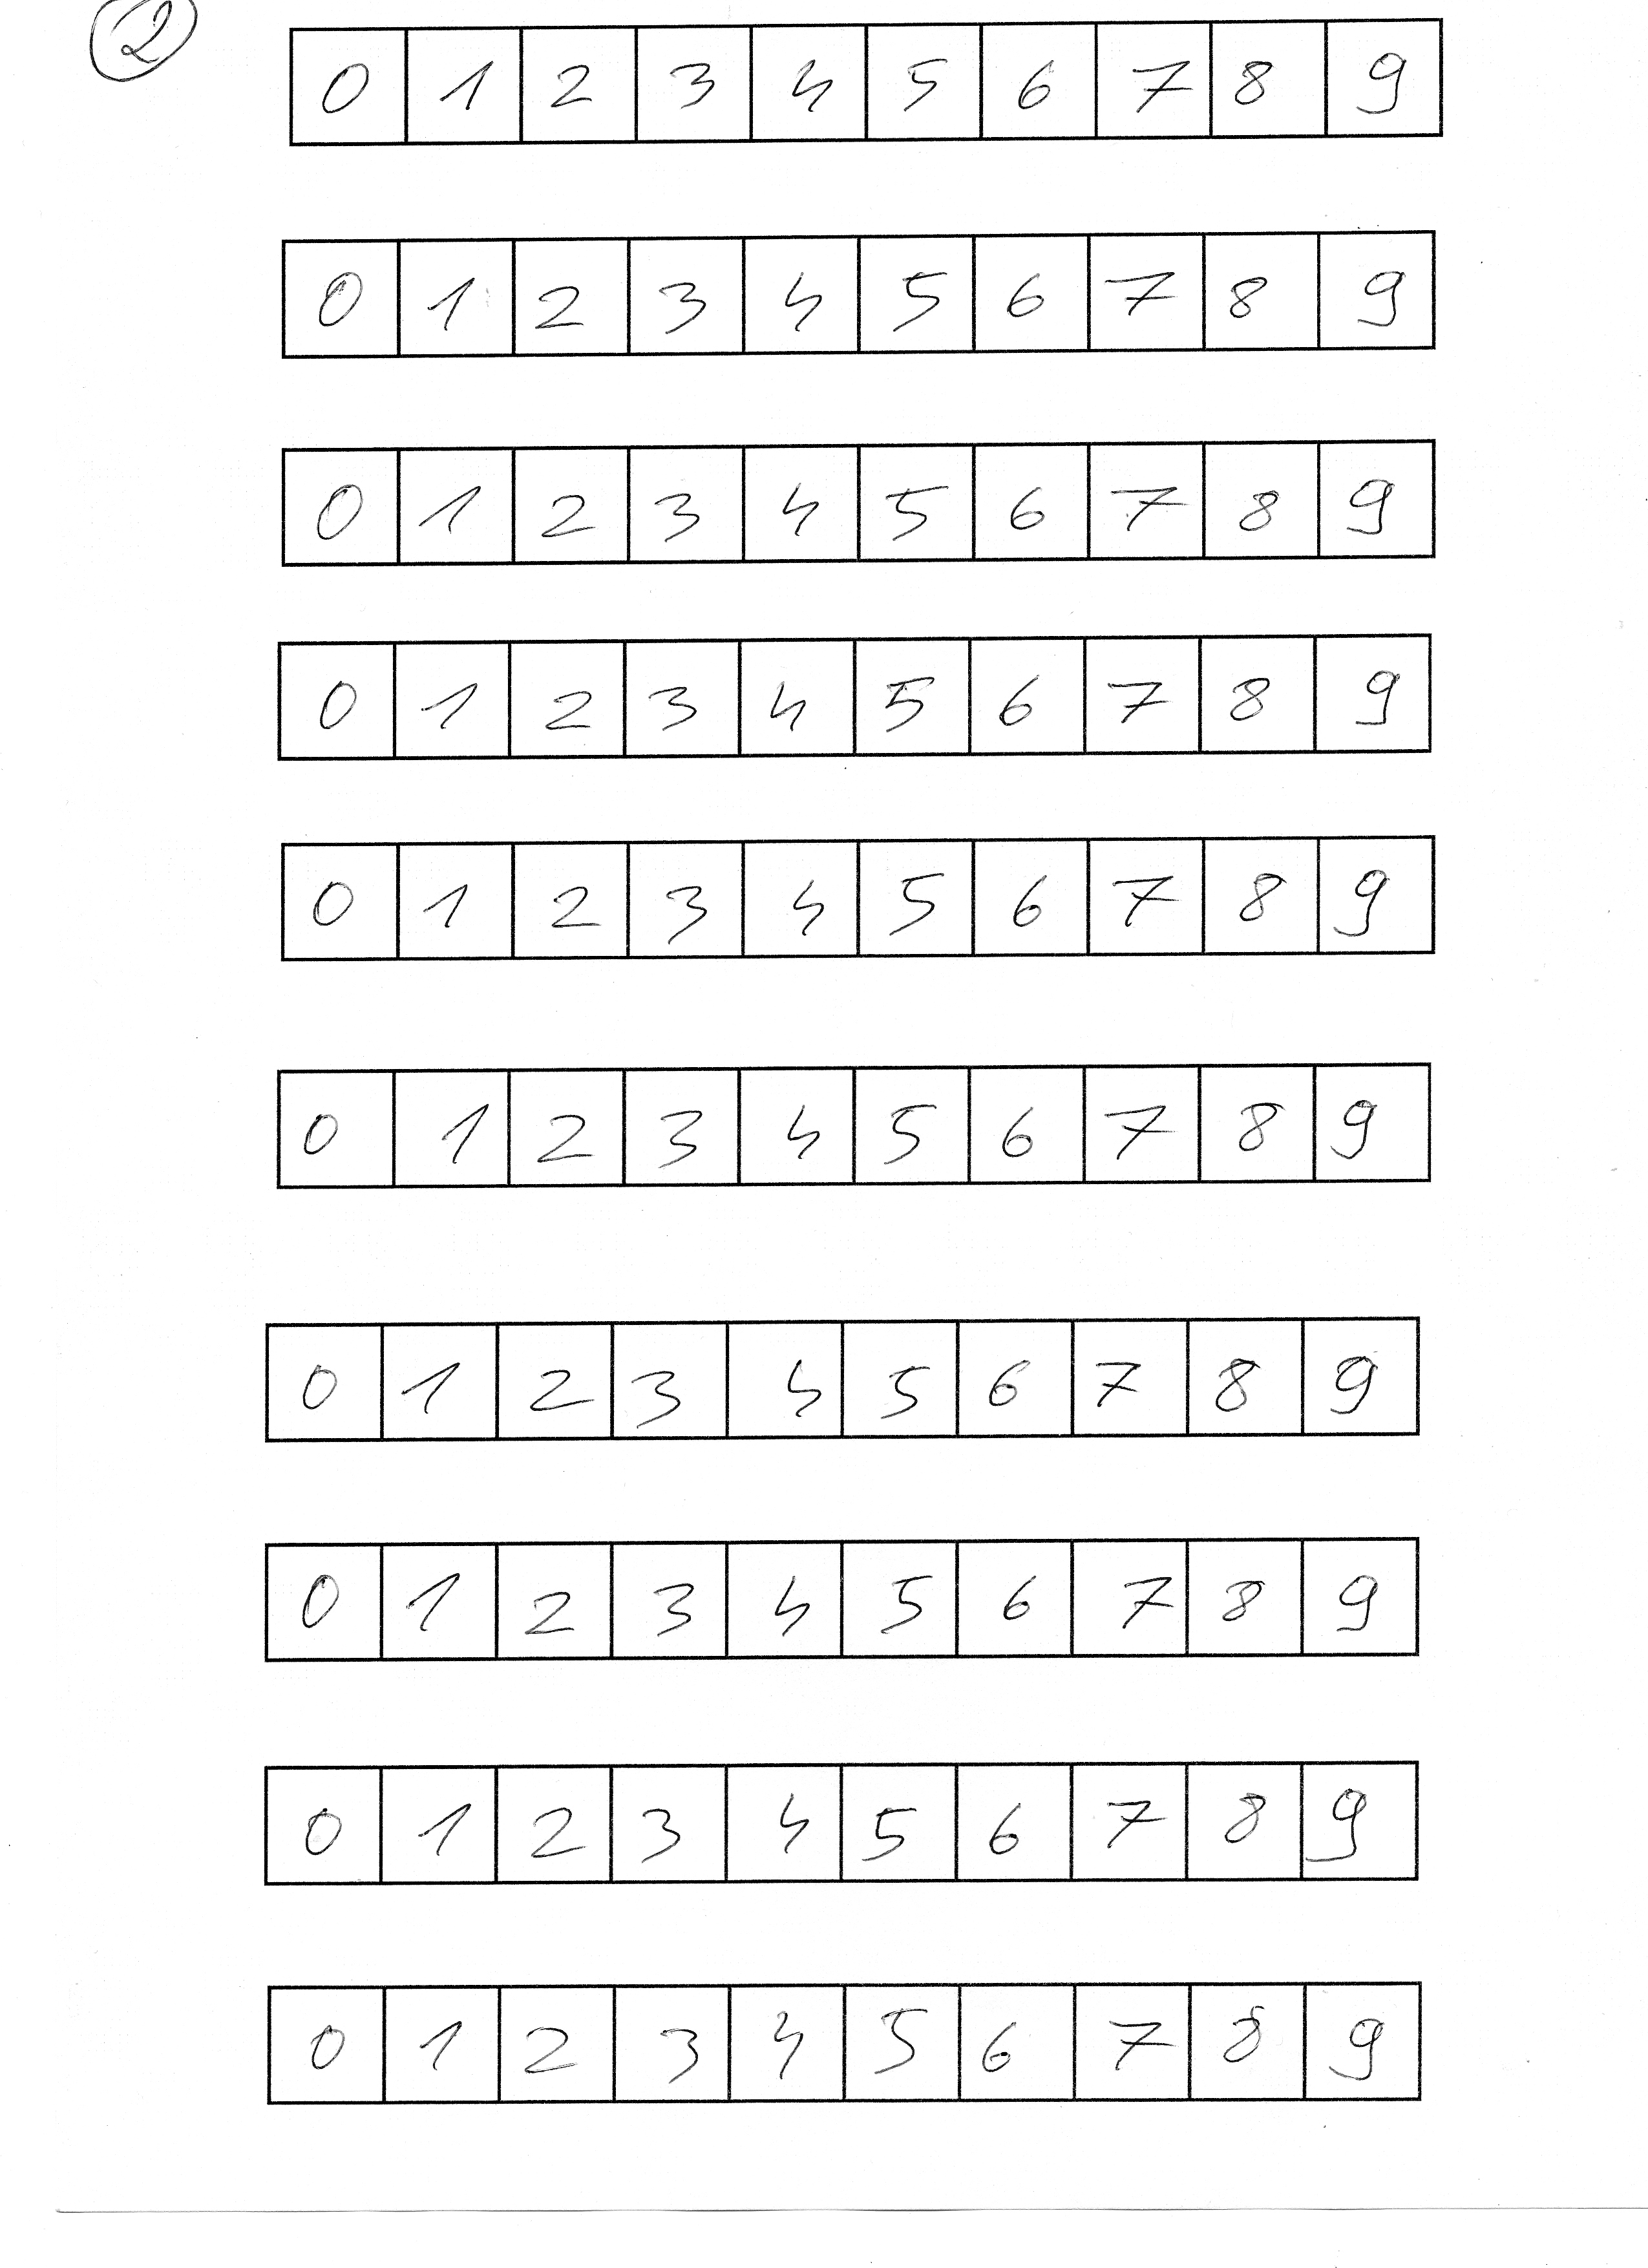 2
0 1 2 3 4 5 6 7 8 9
0 1 2 3 4 5 6 7 8 9
0 1 2 3 4 5 6 7 8 9
0 1 2 3 4 5 6 7 8 9
0 1 2 3 4 5 6 7 8 9
0 1 2 3 4 5 6 7 8 9
0 1 2 3 4 5 6 7 8 9
0 1 2 3 4 5 6 7 8 9
0 1 2 3 4 5 6 7 8 9
0 1 2 3 4 5 6 7 8 9